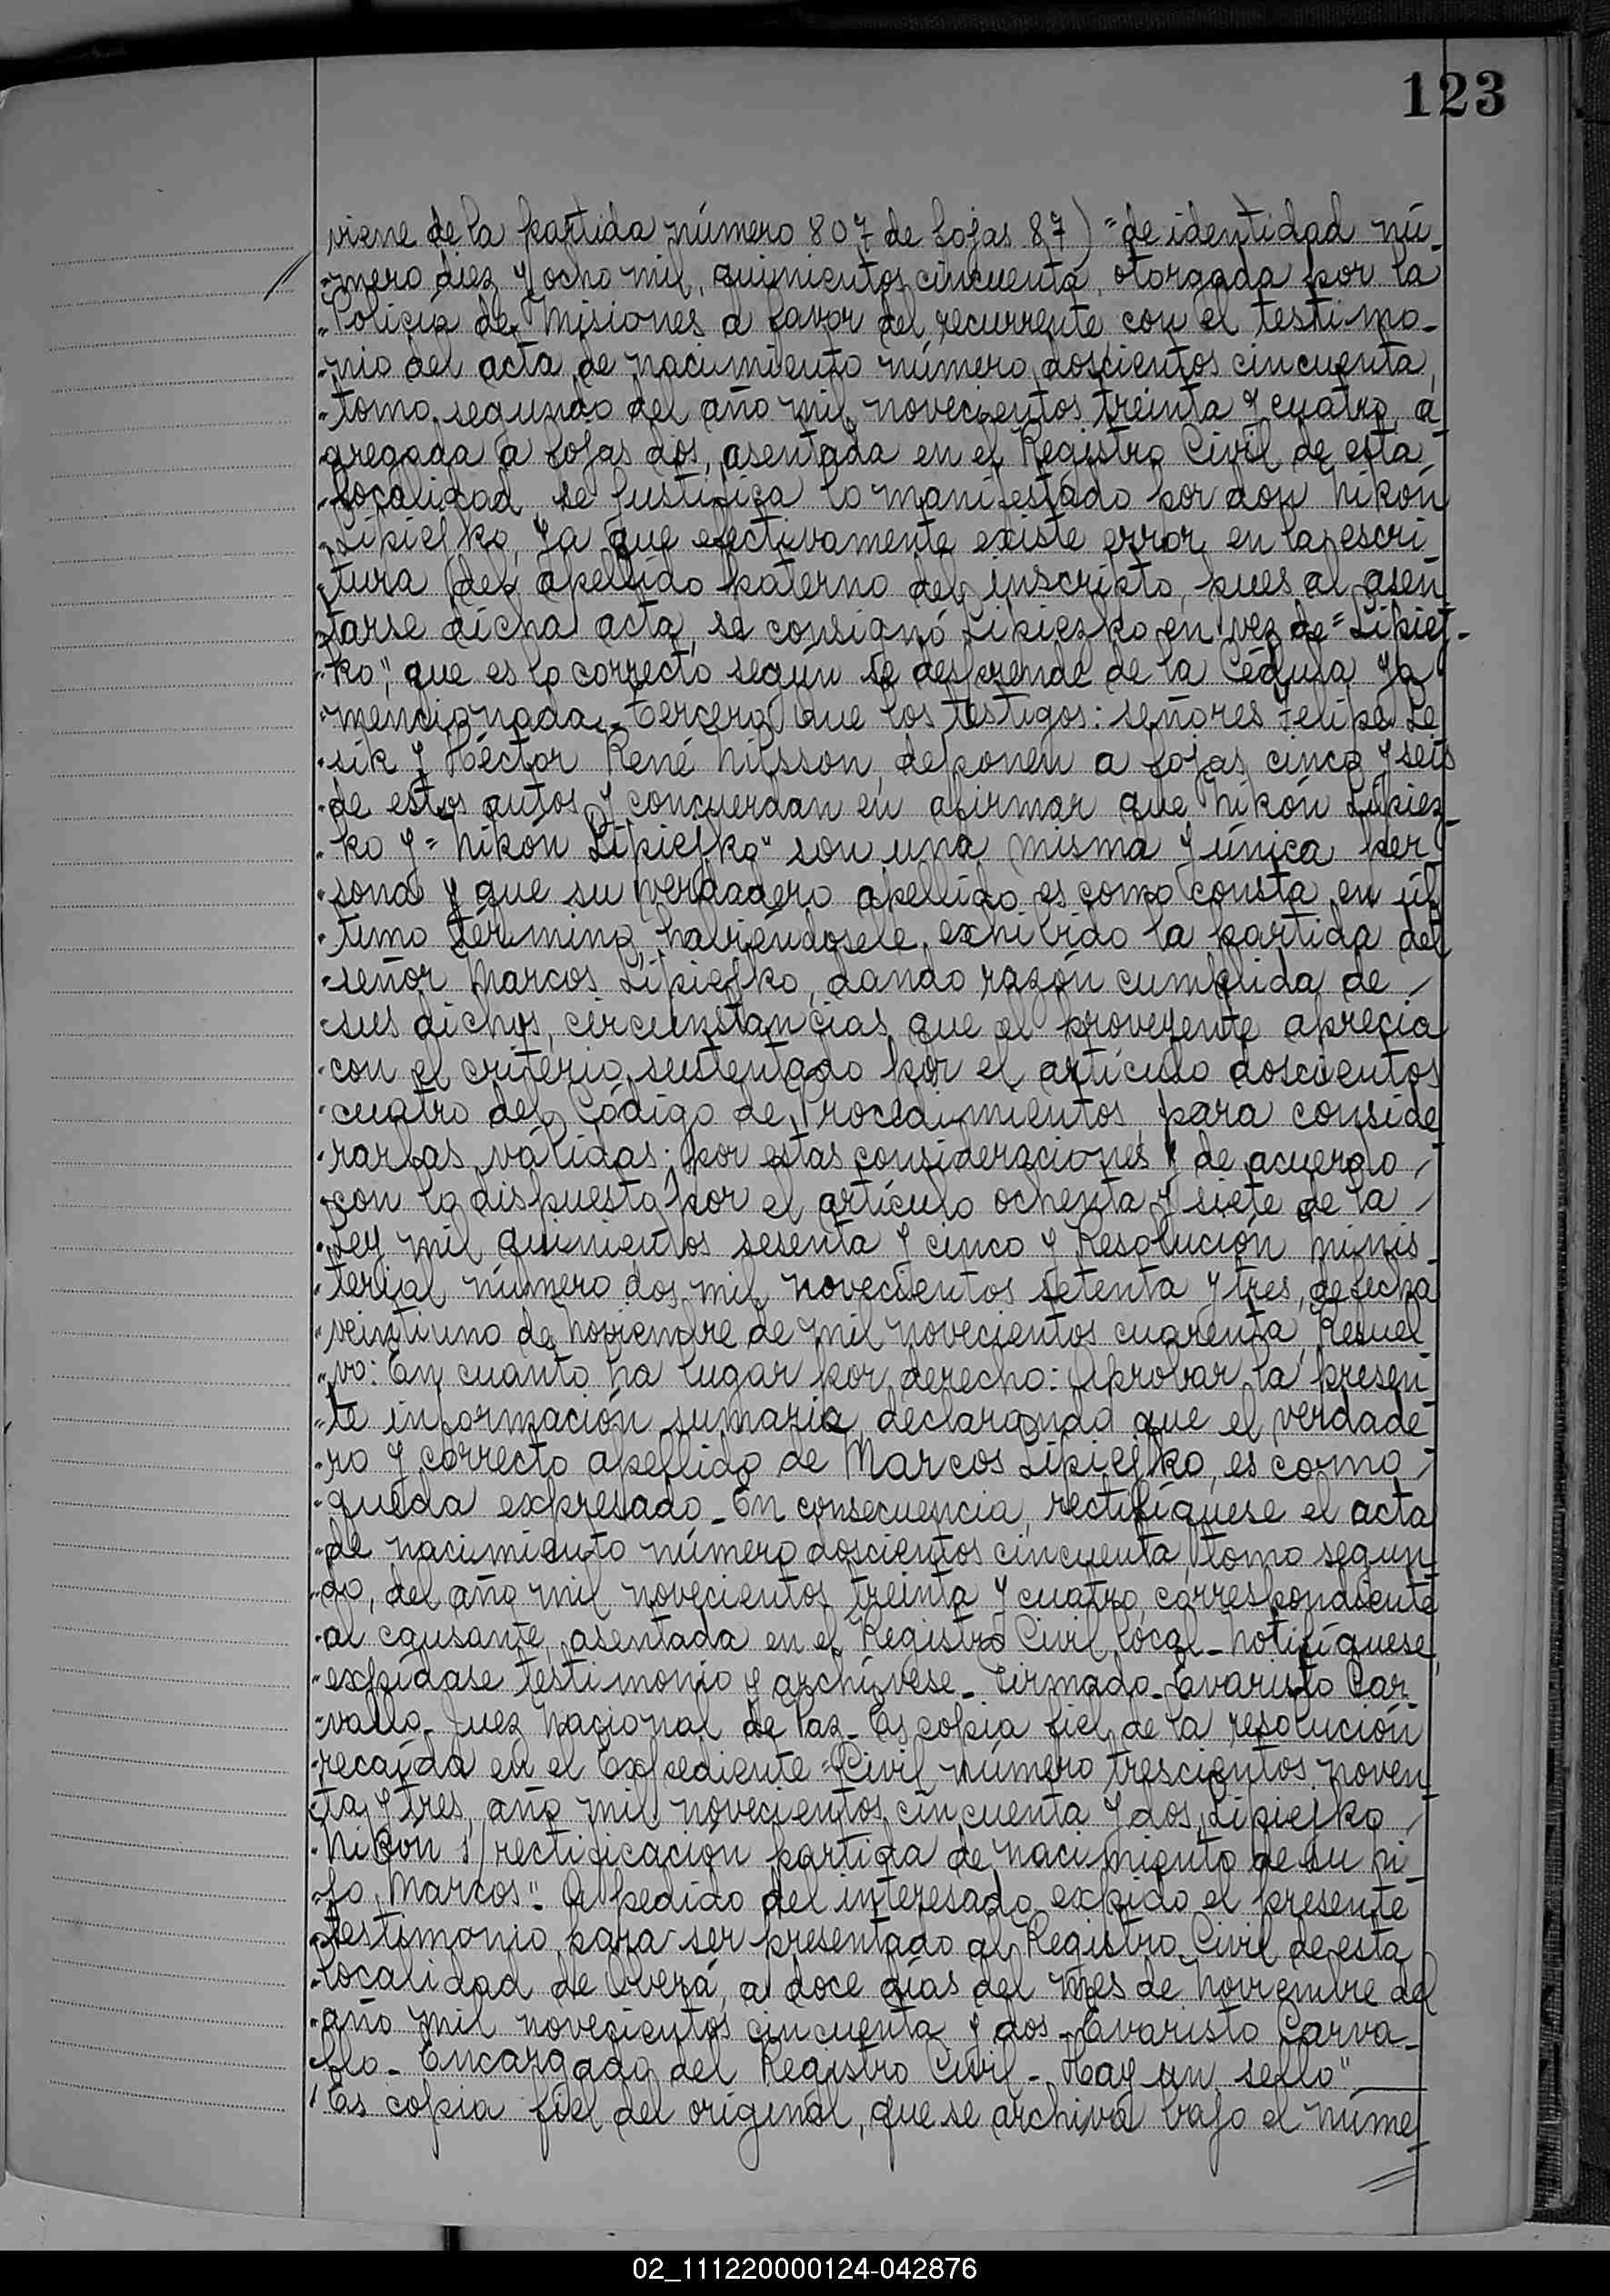 123
viene de la partida número 807 de fojas 87) "de identidad nú-
"mero diez y ocho mil, quinientos cincuenta, otorgada por la
"Policía de Misiones a favor del recurrente, con el testimo-
"nio del acta de nacimiento número doscientos cincuenta,
"tomo segundo del año mil novecientos treinta y cuatro, a
gregada a fojas dos, asentada en el Registro Civil de esta
"localidad, se justifica lo manifestado por don Nikón
"Lipiejko, ya que efectivamente existe error en la escri
"tura del apellido paterno del inscripto, pues al asen
tarse dicha acta, se consignó Lipiezko en vez de "Lipiej-
"ko", que es lo correcto según se desprende de la Cédula ya
"mencionada. Tercero Que los testigos: señores Felipe Le
"sik y Héctor René Nilsson, deponen a fojas cinco y seis
"de estos autos y concuerdan en afirmar que Nikón Lipiez-
"ko y "Nikón Lipiejko" son una misma y única per
"sona y que su verdadero apellido es como consta en úl
"timo término, habiéndosele exhibido la partida del
"señor Marcos Lipiejko, dando razón cumplida de /
"sus dichos, circunstancias que el proveyente aprecia
"con el criterio sustentado por el artículo doscientos
"cuatro del Código de Procedimientos, para conside
"rarlas válidas; por estas consideraciones y de acuerdo /
"con lo dispuesto por el artículo ochenta y siete de la /
"Ley mil quinientos sesenta y cinco y Resolución Minis
"terial número dos mil novecientos setenta y tres, de fecha
"veintiuno de Noviembre de mil novecientos cuarenta, Resuel
"vo: En cuanto ha lugar por derecho: Aprobar la presen
"te información sumaria, declarando que el verdade
"ro y correcto apellido de Marcos Lipiejko, es como /
"queda expresado. En consecuencia, rectifíquese el acta
"de nacimiento número doscientos cincuenta, tomo segun
"do, del año mil novecientos treinta y cuatro, correspondiente
"al causante, asentada en el Registro Civil local. Notifíquese,
"expídase testimonio y archívese. Firmado. Evaristo Car
"vallo. Juez Nacional de Paz. Es copia fiel de la resolución
"recaída en el Expediente "Civil número trescientos noven
"ta y tres, año mil novecientos cincuenta y dos, Lipiejko /
"Nikón s/ rectificación partida de nacimiento de su hi
"jo, Marcos". A pedido del interesado expido el presente
"testimonio para ser presentado al Registro Civil de esta
"localidad de Oberá, a doce días del mes de Noviembre del
"año mil novecientos cincuenta y dos. Evaristo Carva-
"llo. Encargado del Registro Civil. Hay un sello".
Es copia fiel del original, que se archiva bajo el núme
02_111220000124-042876